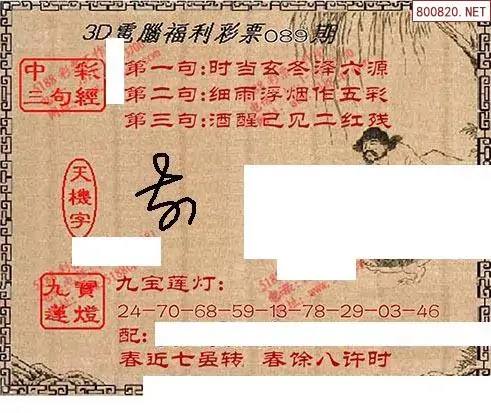 800820.NET
3D電腦福利彩票089期
中彩
三句經
第一句:时当玄冬泽六源
第二句:细雨浮烟作五彩
第三句:酒醒己见二红残
天機字
九寶
蓮燈
九宝莲灯:
24-70-68-59-13-78-29-03-46
配:
春近七晜转 春馀八许时